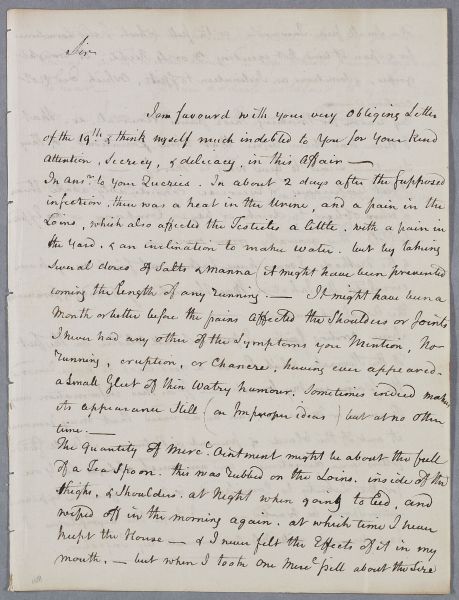 Sir
I am favourd with your very Obliging Letter
of the 19th. & think myself much indebted to You for Your Kind
attention, Secrecy, & delicacy, in this Affair —
In ansr. to your Queries. In about 2 days after the Supposed
infection, there was a heat in the Urine, and a pain in the
Loins, which also affected the Testicles a little. with a pain in
the Yard, & an inclination to make water. but by taking
Several doses of Salts & Manna (it might have been prevented
coming the length of any running. — It might have been a
Month or better before the pains affected the Shoulders or Joints
I never had any other of the Symptoms you Mention, No
running, eruption, or Chancre, having ever appeared.
a Small Gleet of thin Watry humour, Sometimes indeed makes
its appearance Still (on Improper ideas) but at no other
time. —
The Quantity of Merc. Ointment might be about the full
of a Tea Spoon. this was rubbed on the Loins. inside of the
thighs, & Shoulders. at Night when going to bed, and
wiped off in the morning again. at which time I never
kept the House — & I never felt the Effects of it in my
mouth. — but when I took one Merc. pill about the Size